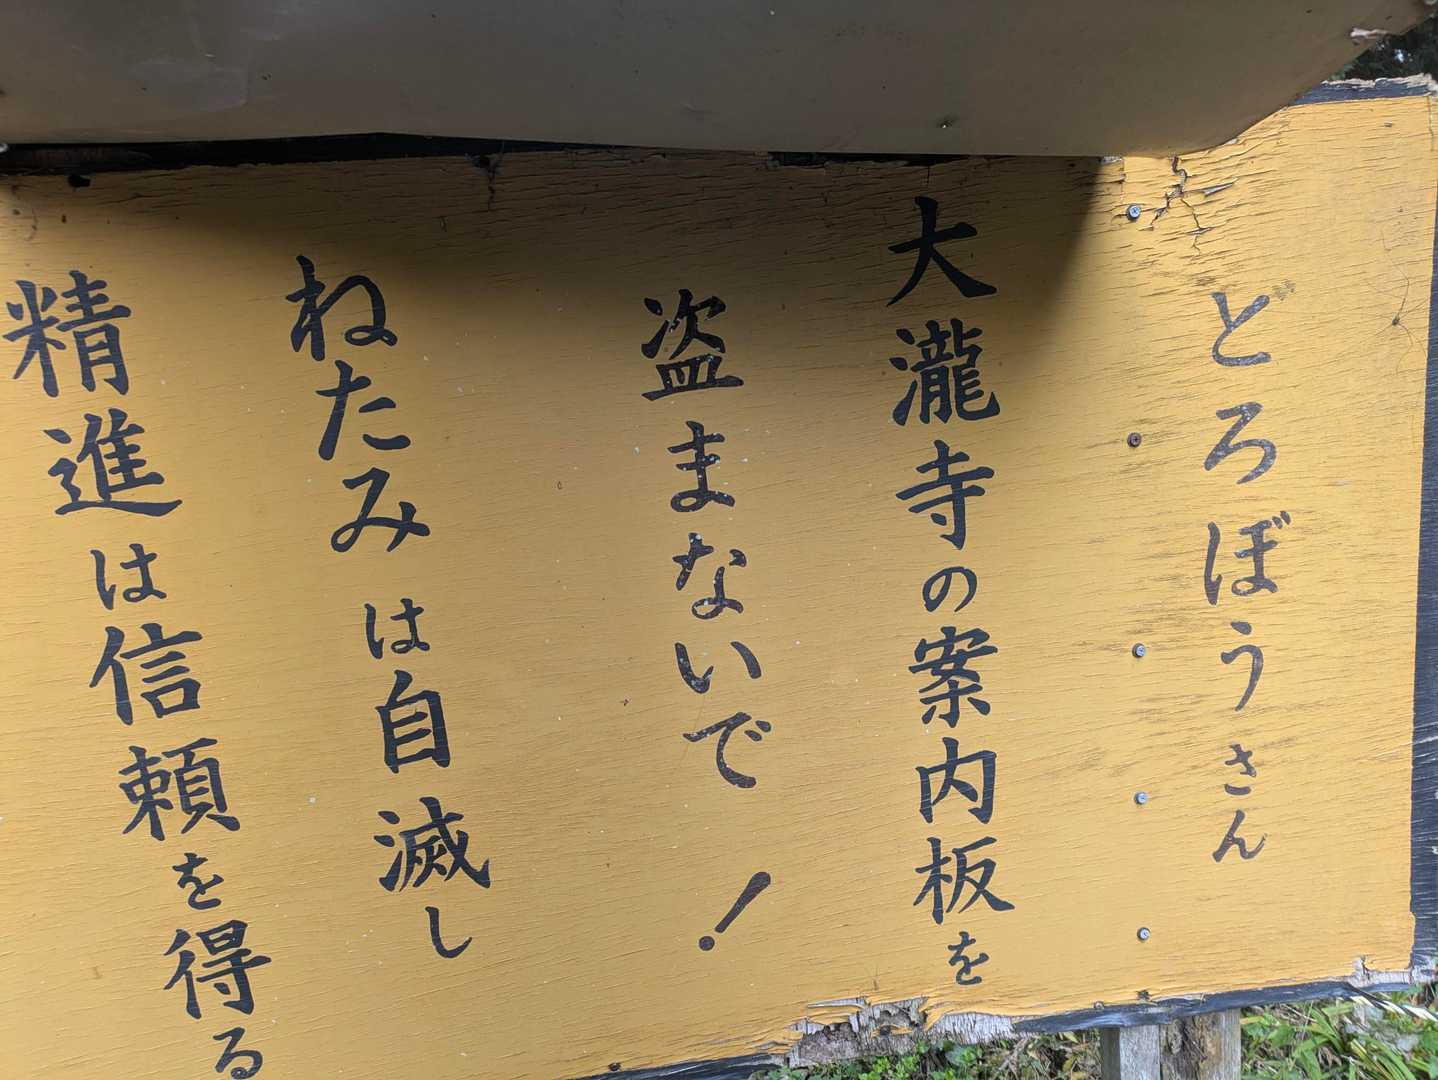 どろぼうさん
大瀧寺の案内板を
盗まないで！
ねたみは自滅し
精進は信頼を得る